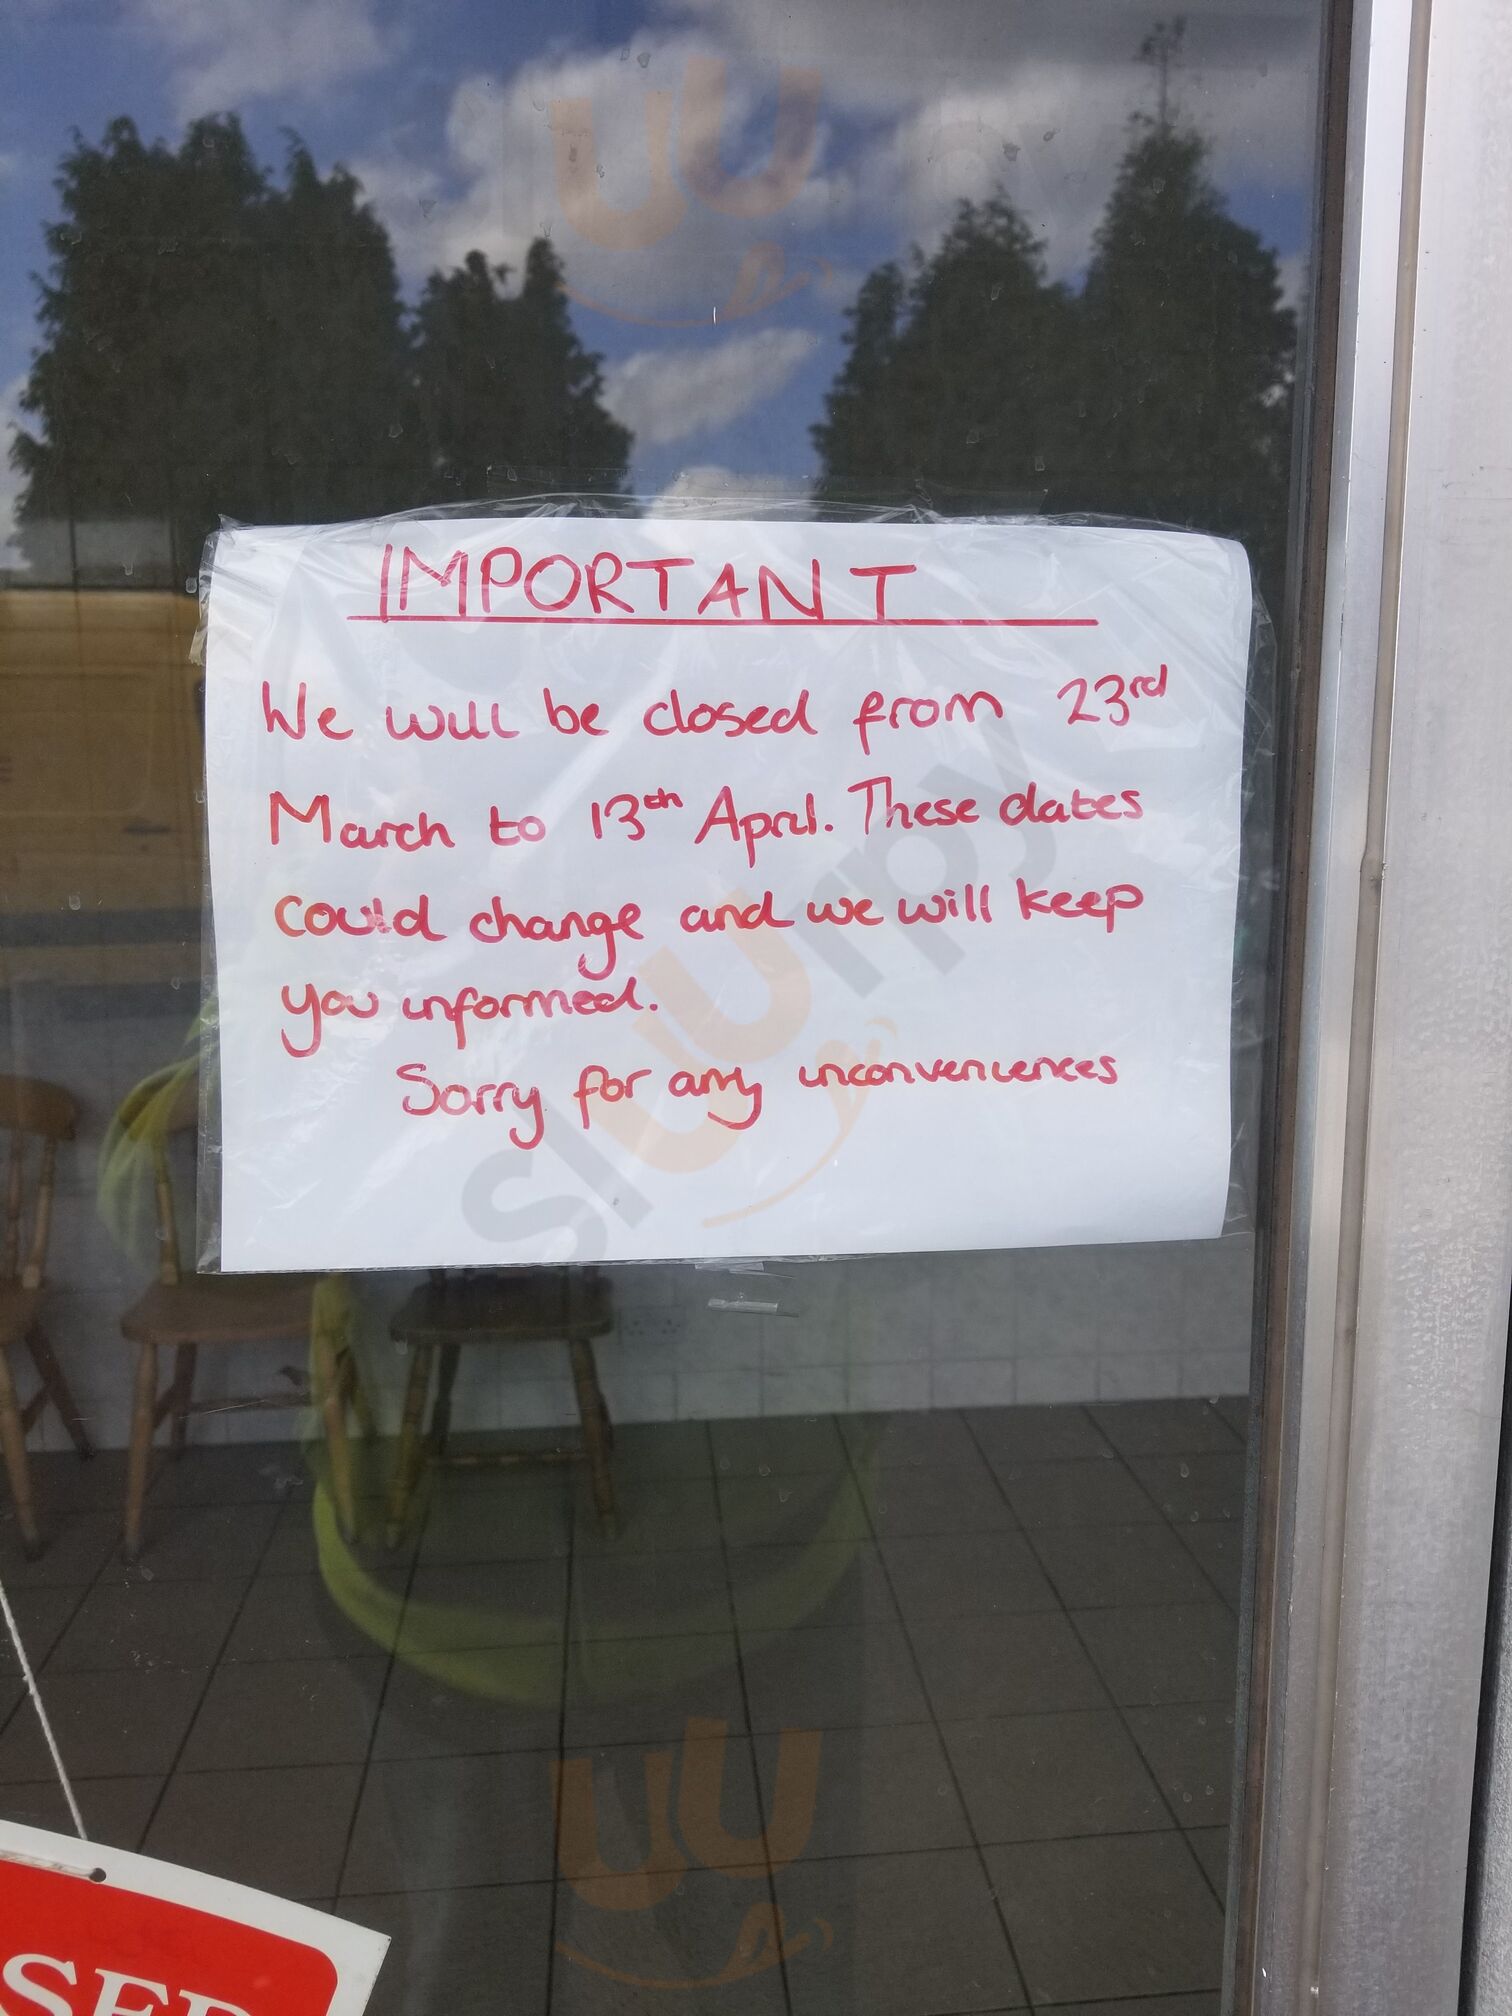 IMPORTANT
We will be closed from 23rd
March to 13th April. These dates
could change and we will keep
you informed.
Sorry for any inconveniences
slurpy
SED